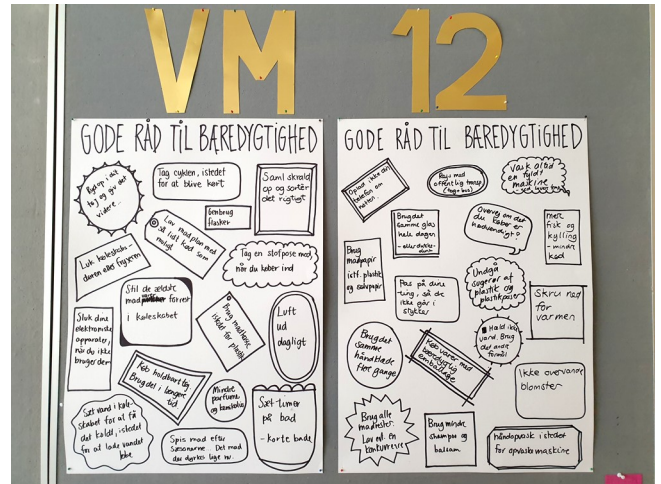 VM 12
GODE RÅD TIL BÆREDYGTIGHED
tøj og giv det
videre...
Tag cyklen, istedet
for at blive kørt
Saml skrald
op og sortér
det rigtigt
Genbrug
flasker
Lav mad plan med
så lidt kød som
muligt
Luk køleskabs-
døren eller fryseren
Tag en stofpose med,
når du køber ind
Stil de ældste
mad forrest
i køleskabet
Brug madkasse
istedet for plastik
Luft
ud
dagligt
Sluk dine
elektroniske
apparater,
når du ikke
bruger dem
Køb holdbart tøj
Brug det i længere
tid
Mindre
parfume
og kemikalier
Sæt timer
på bad
- korte bade
Sæt vand i køle-
skabet for at få
det koldt, istedet
for at lade vandet
løbe
Spis mad efter
sæsonerne. Det mad
der dyrkes lige nu.
GODE RÅD TIL BÆREDYGTIGHED
Oplad ikke din
telefon om
natten.
Rejs med
offentlig transp.
(tog + bus)
Vask altid
en fyldt
maskine
Brug det
samme glas
hele dagen
Overvej om det
du køber er
nødvendigt?
mere
fisk og
kylling
- mindre
kød
Brug
madpapir
istf. plastik
og sølvpapir
Pas på dine
ting, så de
ikke går i
stykker
Undgå
sugerør af
plastik og
plastikposer
Skru ned
for
varmen
Brug det
samme
håndklæde
flere gange
Køb varer med
bæredygtig
emballage
Hald ikke
vand. Brug
det andre
formål
Ikke overvande
blomster
Brug alle
madrester.
Lav evt. en
konkurrence
Brug mindre
shampoo og
balsam
håndopvask i stedet
for opvaskemaskine